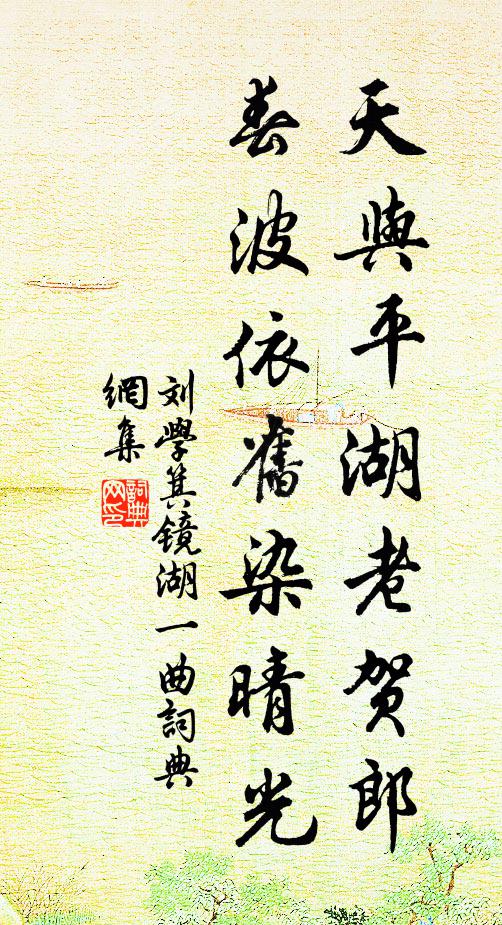 天與平湖老贺郎
春波依舊染晴光
刘學箕镜湖一曲詞典
網集
詞典
网印